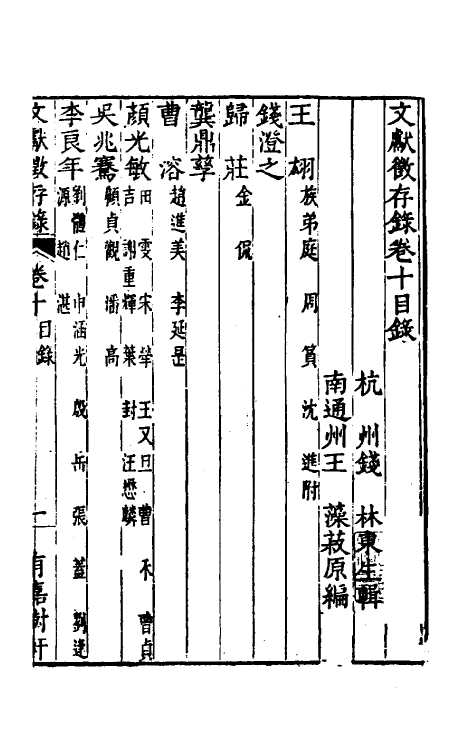 文獻徵存錄卷十目錄
杭州錢　林東生輯
南通州王　藻菽原編
王翃　族弟庭　周篔　沈進附
錢澄之
歸莊　金侃
龔鼎孳
曹溶　趙進美　李延昰
顏光敏　田雯　宋犖　王又旦　曹禾　曹貞吉　謝重輝　葉封　汪懋麟
吳兆騫　顧貞觀　潘高
李良年　劉體仁　申涵光　殷岳　張蓋　劉逢源　趙湛
文獻徵存錄　卷十目錄　一　有嘉樹軒